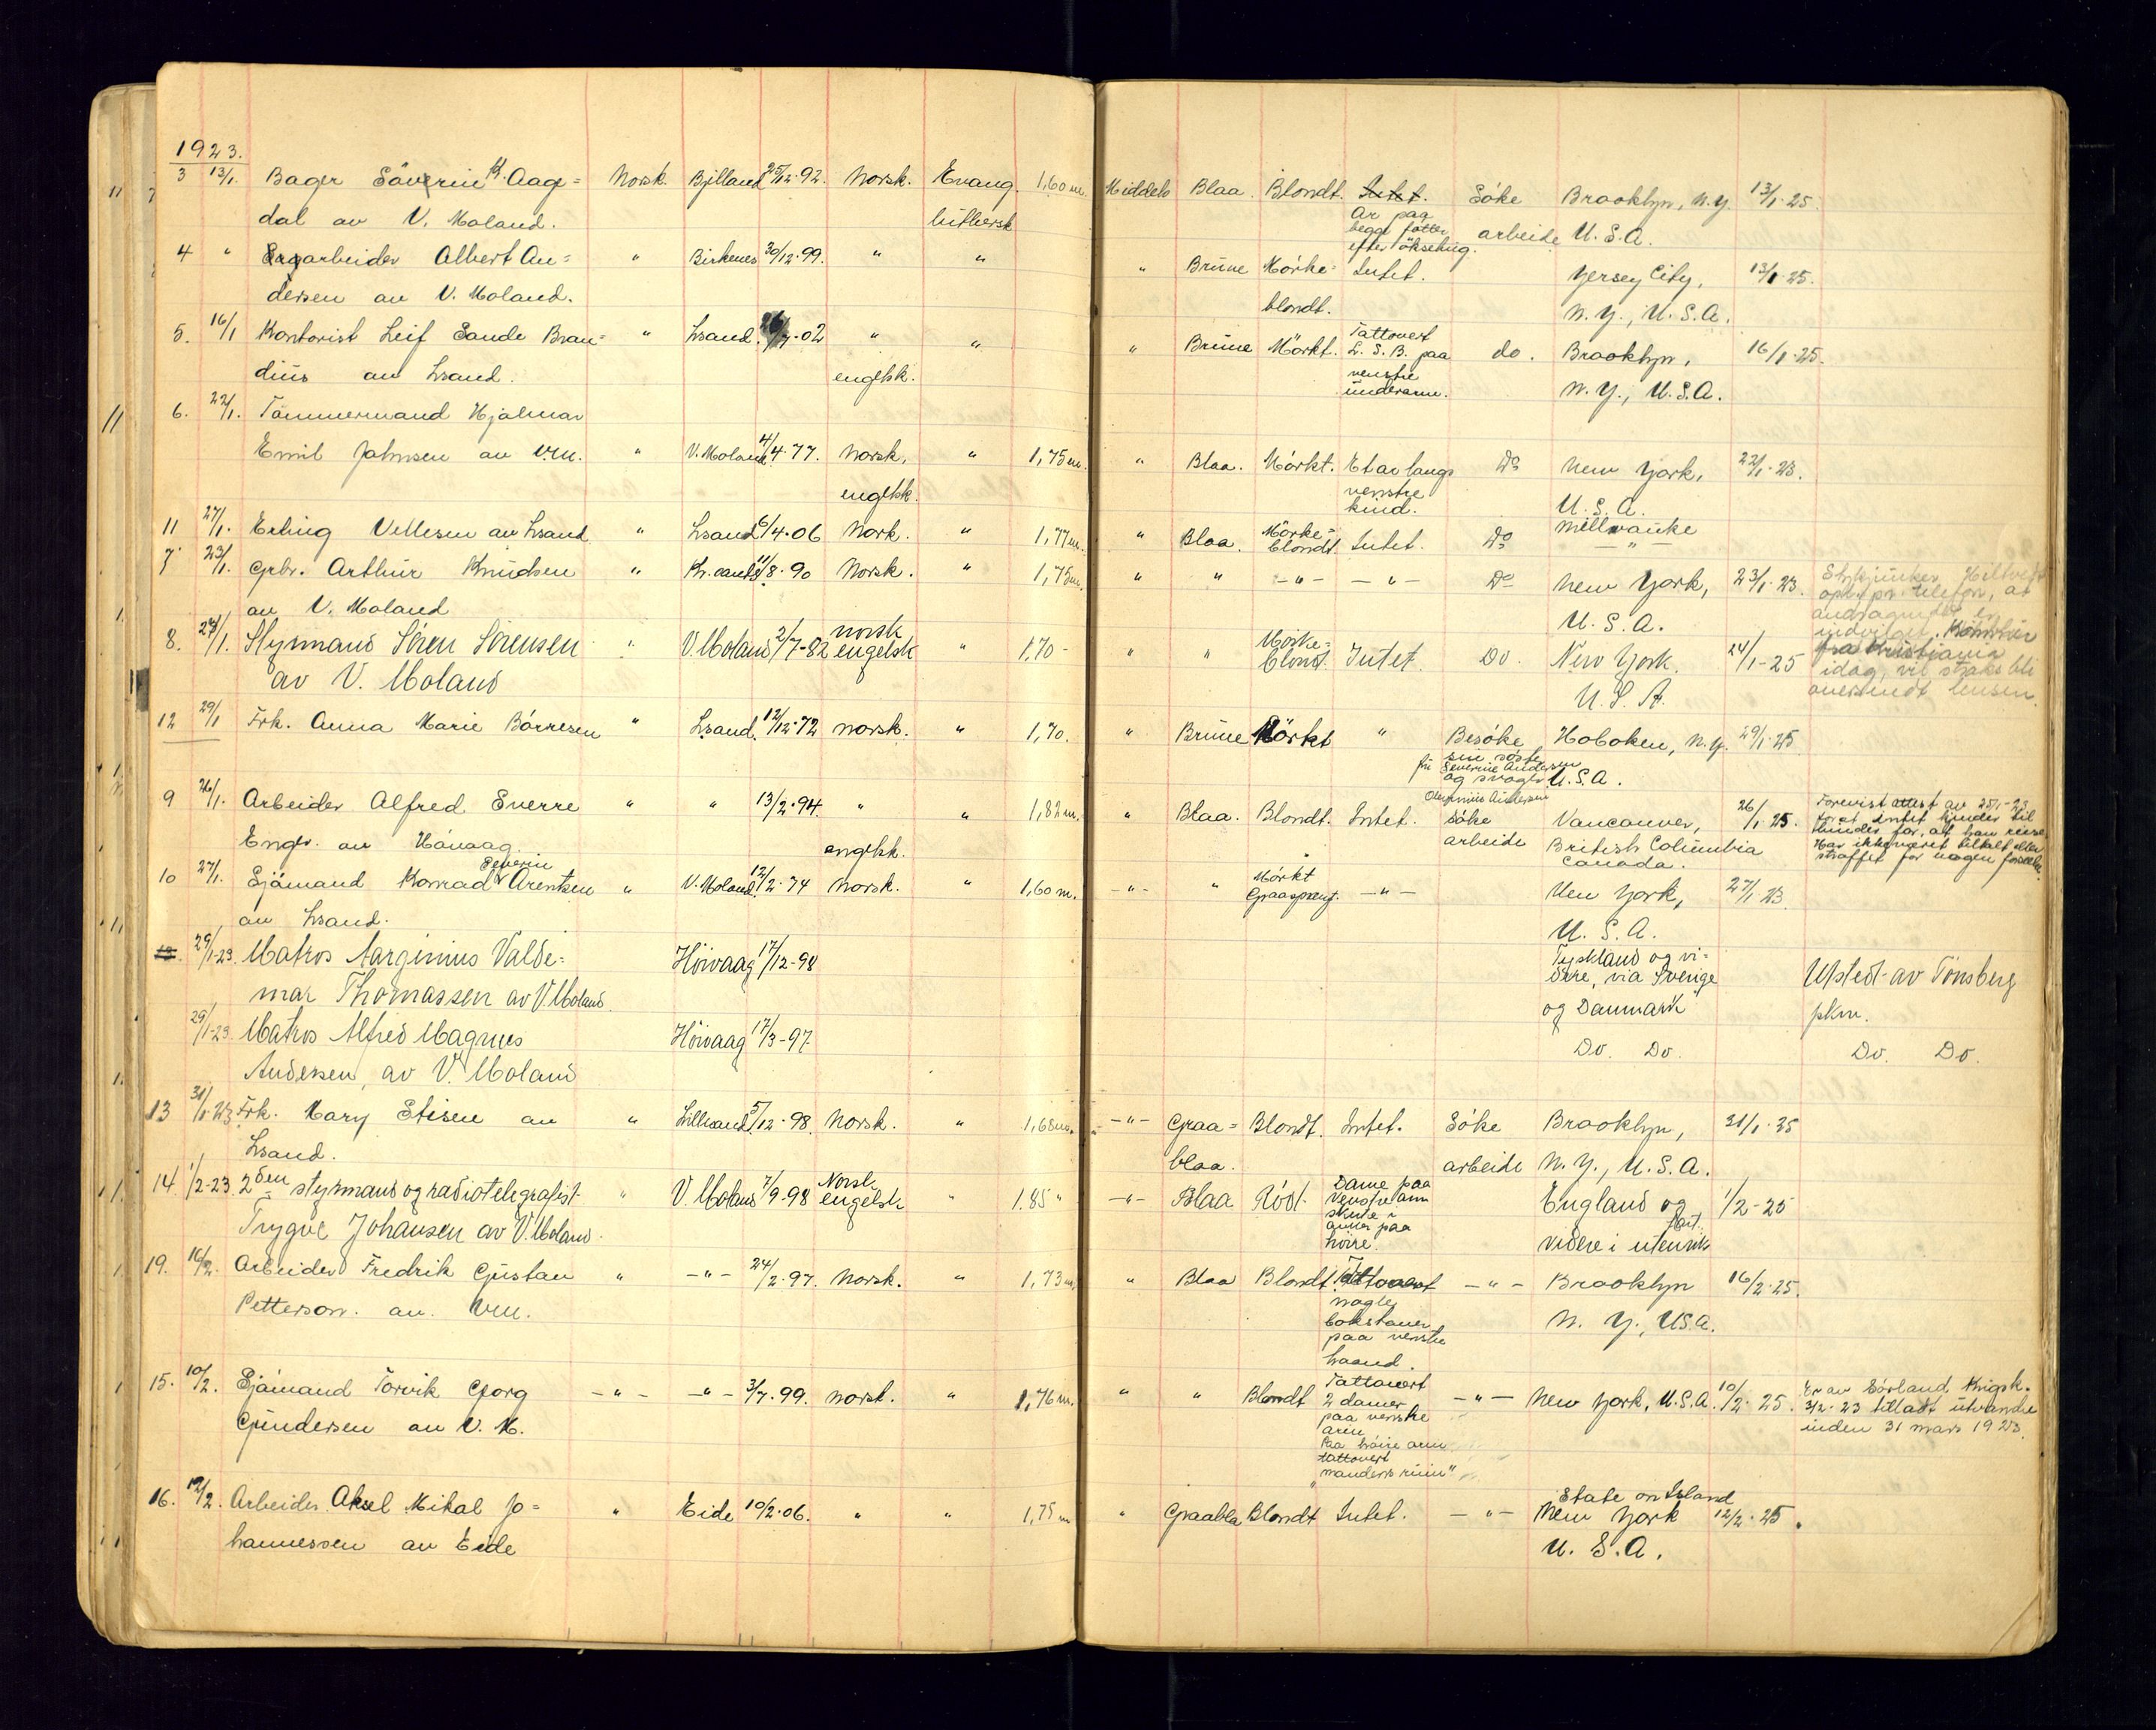 1923.
3 13/1. Bager Säverin K. Aage= Norsk. Bjelland 25/12.92. Norsk. Evang. 1,60 m. Middels Blaa. Blondt. Intet. Söke Brooklyn, N.Y. 13/1.25.
dal av V. Moland. luthersk Ar paa begge fötter efter öksehug. arbeide U.S.A.
4 " Sagarbeider Albert An= " Birkenes 30/12.99. " " " Brune Mörke= Intet. Yersey City, 13/1.25.
dersen av V. Moland. blondt. N.Y., U.S.A.
5. 16/1 Kontorist Leif Sande Bran= " Lsand. 26/7.02 " " " Brune Mörkt. Tattovert L.S.B. paa do. Brooklyn, 16/1.25.
dius av Lsand. engelsk. venstre underarm. N.Y., U.S.A.
6. 22/1. Tömmermand Hjalmar
Emil Johnsen av V.M. " V. Moland 4/4.77. Norsk, " 1,75 m. " Blaa. Mörkt. Et ar langs Do New York, 22/1.23.
engelsk. venstre kind. U.S.A.
11 27/1. Erling Vellesen av Lsand " Lsand 6/4.06 Nork. " 1,77 m. " Blaa. Mörke= blondt. Intet. Do Millwauke - " -
7 23/1. Grbr. Arthur Knudsen " Kr.sand S. 11/8.90 Norsk. " 1,75 m. " " - " - - " - Do New York, 23/1.23.
av V. Moland U.S.A.
opl. pr. telefon, at
andragendet er
indvilget.
fra Kristiania
idag, vil straks bli
oversendt lensm.
8. 24/1. Styrmand Sören Sörensen " V. Moland 2/7-82 norsk engelsk " 1,70 - " " Mörke= blond. Intet. Do. New York. 24/1-25
av V. Moland U.S.A.
12 29/1 Frk. Anna Marie Börresen " Lsand. 12/12.72 norsk. " 1,70. " Brune Mörkt " Besöke Hoboken, N.Y. 29/1.25
sin söster fru Severine Andersen og svoger U.S.A.
Andersen
9 26/1. Arbeider Alfred Sverre " " 13/2.94. " " 1,82 m. " Blaa. Blondt. Intet. söke Vancouver, 26/1.25. Forevist attest av 25/1-23
Engr. av Hövaag. engelsk. arbeide British Columbia Canada. for at intet hinder til
hinder for, at han reiser.
Har ikke været tiltalt eller
straffet for nogen forseelse
10 27/1. Sjömand Konrad Severin Arentsen " V. Moland. 12/2.74 Norsk. " 1,60 m. - " - " Mörkt Graaspreng. - " - New York, 27/1.23.
av Lsand. U.S.A.
13. 29/1-23. Matros Targinius Valde= Höivaag 17/12-98 Tyskland og vi= Utstedt av Tönsberg
mar Thomassen av V. Moland. dere, via Sverige og Danmark pkm.
29/1-23 Matros Alfred Magnus Höivaag 17/3-97. Do. Do. Do. Do.
Andersen, av V. Moland
13 31/1.23 Frk. Mary Stisen av " Lillesand. 5/12.98. Norsk. " 1,68 m. - " - Graa= Blondt. Intet. Söke Brooklyn, 31/1.25
Lsand. blaa. arbeide N.Y., U.S.A.
14. 1/2-23. 2den styrmand og radiotelegrafist " V. Moland 7/9-98 Norsk engelsk " 1.85 " - " - Blaa Rödt. Dame paa venstre arm England og 1/2-25
Trygve Johansen av V. Moland. skute i anker paa höire. videre i utenriks fart.
19. 16/2. Arbeider Fredrik Gustav " - " - 24/2.97. Norsk. " 1,73 m. " Blaa Blondt. Tattovert - " - Brooklyn 16/2.25.
Petterson. av. V.M. nogle bokstaver paa venstre haand. N.Y., U.S.A.
15. 10/2. Sjömand Torvik Georg - " - - " - 3/7.99. norsk. " 1,76 m. " " Blondt Tattovert - " - New York, U.S.A. 10/2.25. Er av Sörland. Krigsk.
Gundersen av V.M. 2 damer paa venstre arm 3/2-23 tilladt utvandre
Paa höire arm inden 31 mars 1923.
tattovert
"manders ruin"
16. 12/2. Arbeider Aksel Mikal Jo= " Eide 10/2.06. " " 1,75 m " Graabla Blondt Intet. - " - State on Island New York 12/2.25.
hannessen av Eide U.S.A.